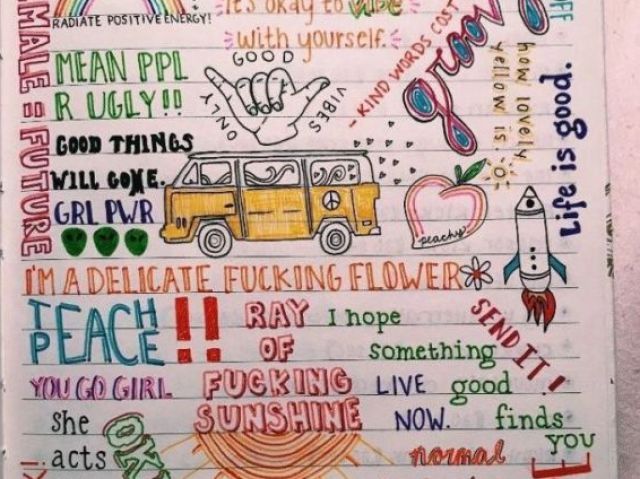 RADIATE POSITIVE ENERGY!
It's okay to vibe
with yourself.
MALE = FUTURE
MEAN PPL
R UGLY!!
GOOD
ONLY
VIBES
- KIND WORDS COST
groovy
how lovely
yellow is
Life is good.
GOOD THINGS
WILL COME.
GRL PWR
peachy
I'M A DELICATE FUCKING FLOWER
TEACH
PEACE!!
RAY
OF
FUCKING
SUNSHINE
I hope
something
good
finds
YOU
SEND IT!
YOU GO GIRL
LIVE
NOW.
She
acts
normal